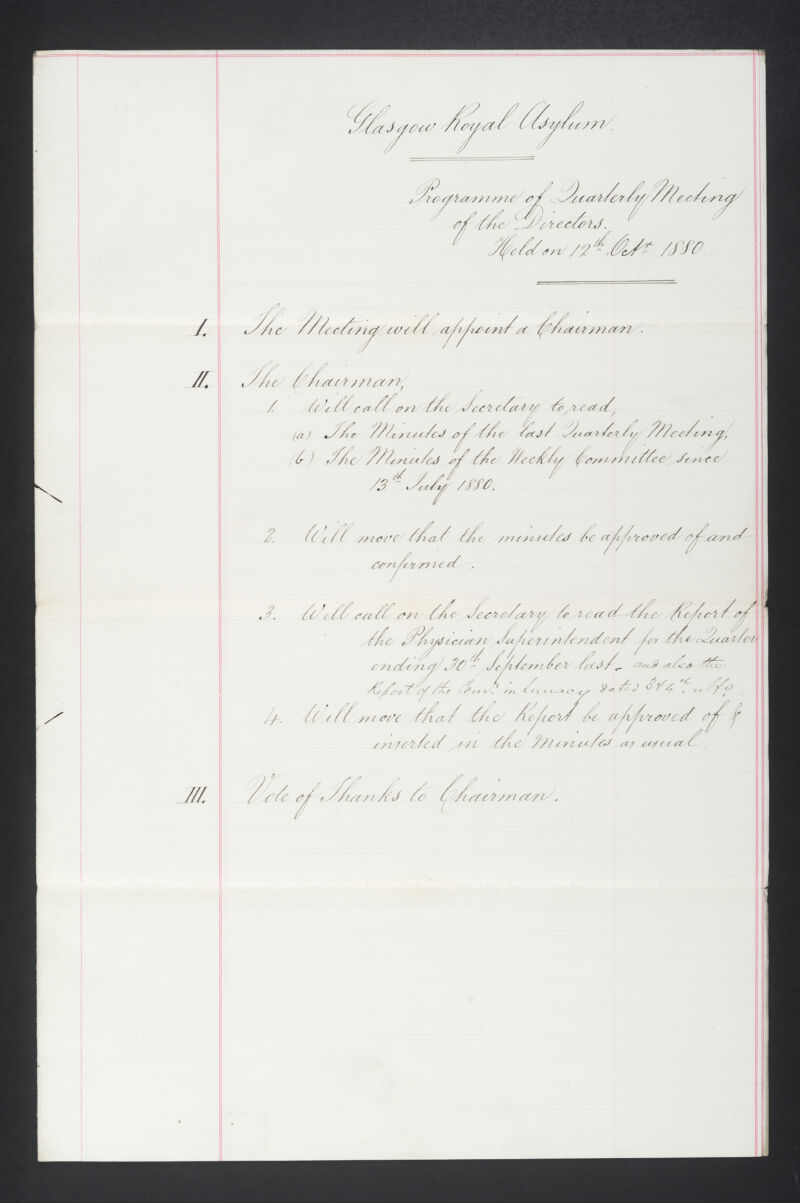 Glasgow Royal Asylum.
Programme of Quarterly Meeting
of the Directors.
Held on 12th Octr 1880.
I. The Meeting will appoint a Chairman.
II. The Chairman,
1. Will call on the Secretary to read,
(a) The Minutes of the last Quarterly Meeting,
(b) The Minutes of the Weekly Committee, since
13th July 1880.
2. Will move that the minutes be approved of and
confirmed.
3. Will call on the Secretary to read the Report of
the Physician Superintendent for the Quarter
ending 30th September last - and also the
Report of the Comrs in Lunacy dated 3d & 4th ulto.
4. Will move that the Report be approved of &
inserted in the Minutes as usual.
III. Vote of Thanks to Chairman.